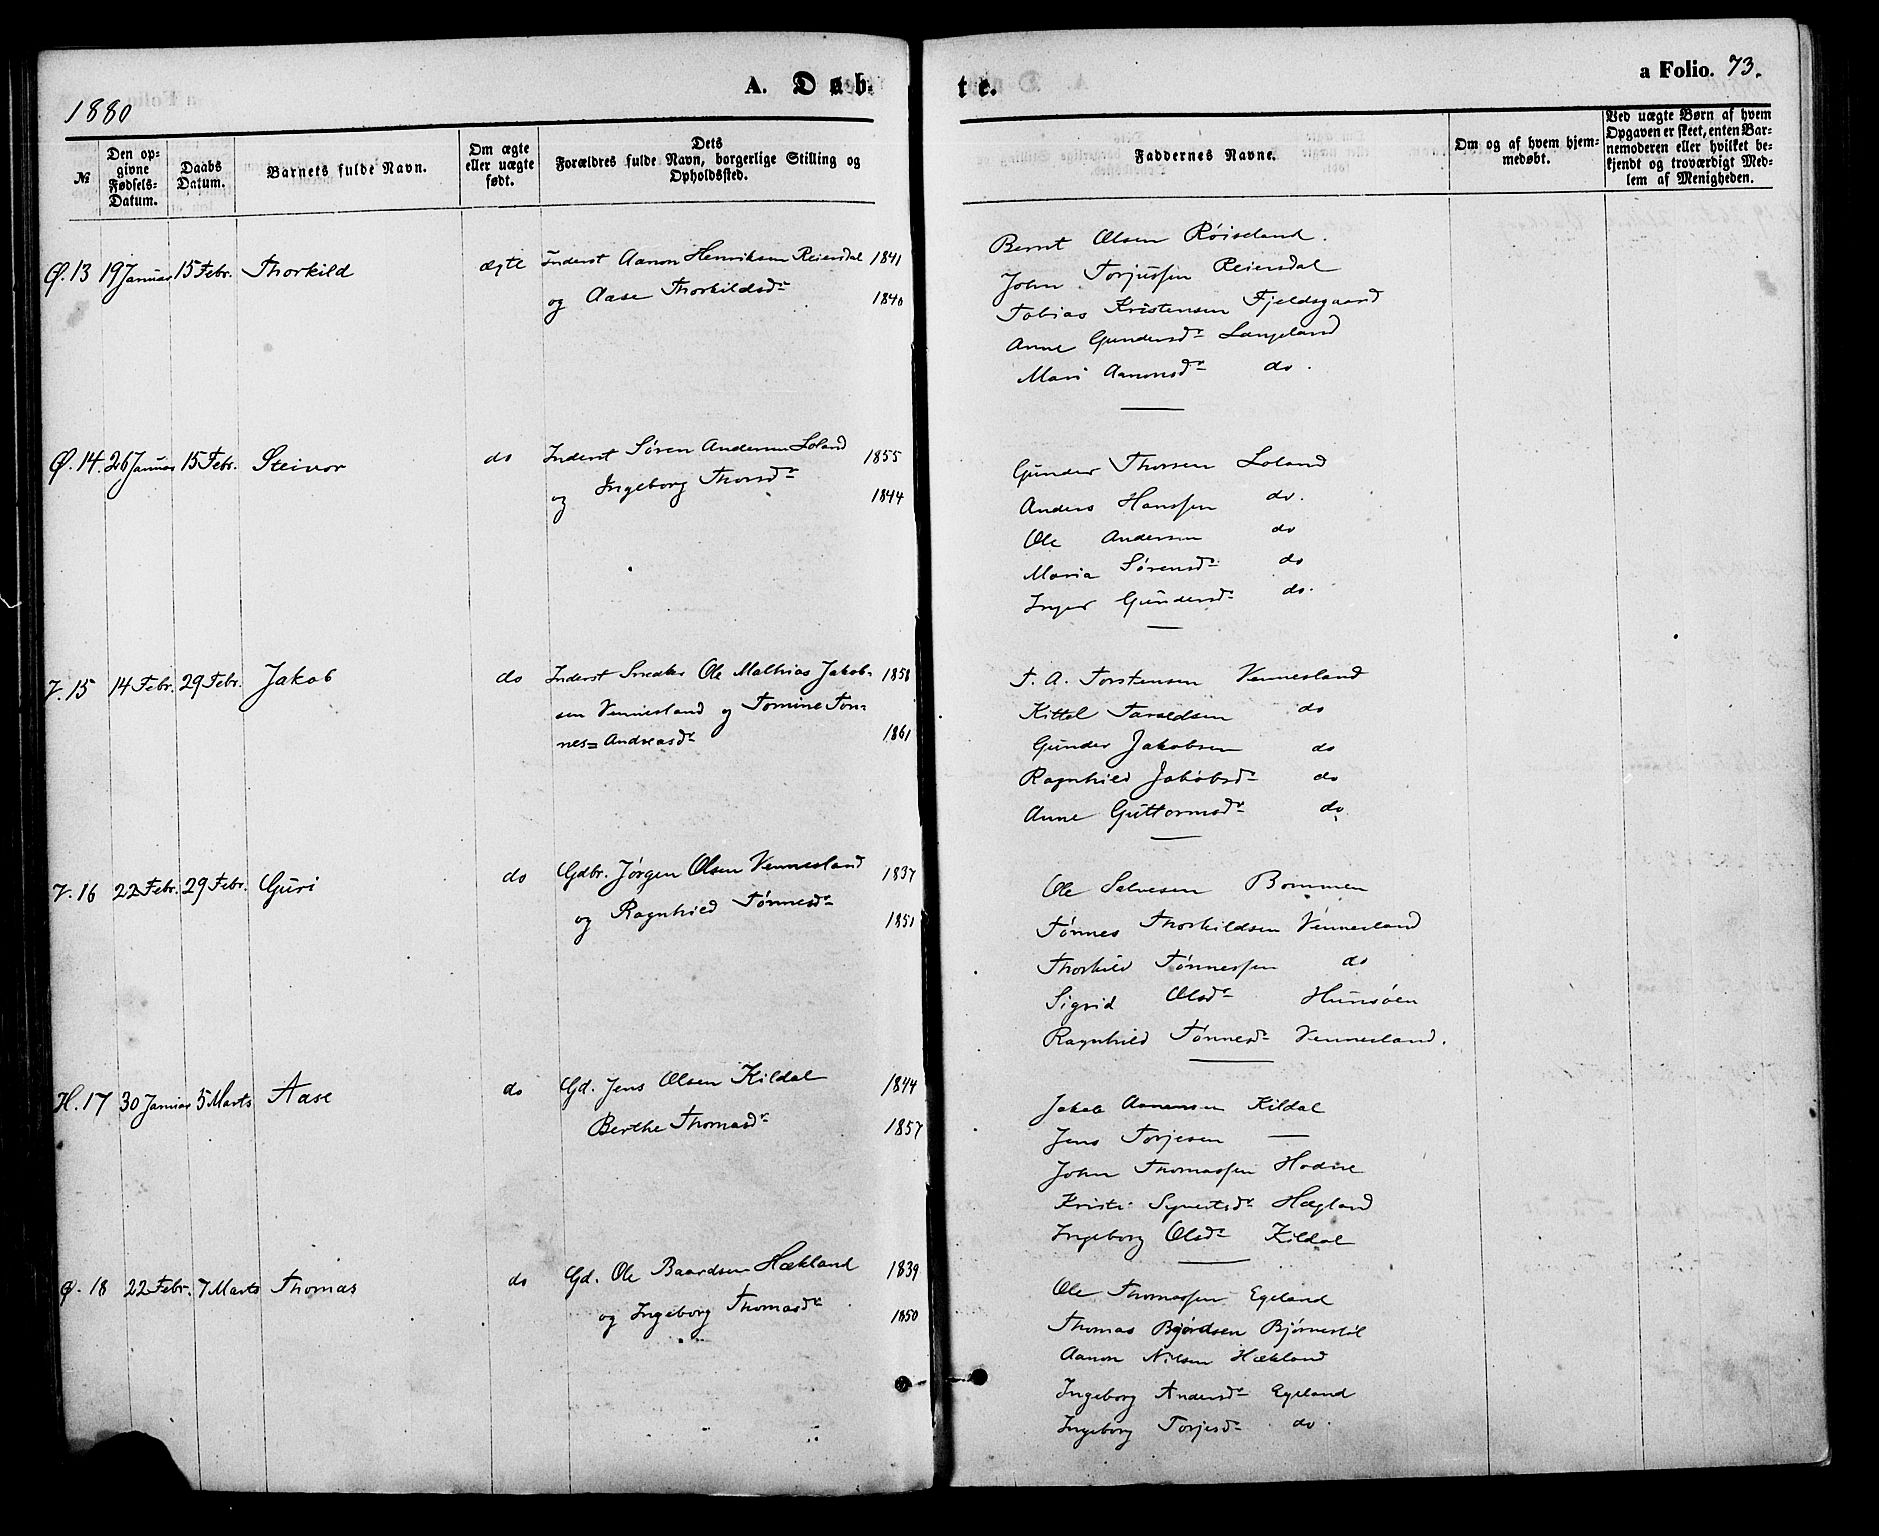 1880
A. Døb-
te.
a Folio. 73.
№
Den op-
givne
Fødsels-
Datum.
Daabs
Datum.
Barnets fulde Navn.
Om ægte
eller uægte
født.
Dets
Forældres fulde Navn, borgerlige Stilling og
Opholdssted.
Faddernes Navne.
Om og af hvem hjem-
medøbt.
Ved uægte Børn af hvem
Opgaven er skeet, enten Bar-
nemoderen eller hvilket be-
kjendt og troværdigt Med-
lem af Menigheden.
Ø. 13 19 Januar 15 Febr. Thorkild ægte Inderst Aanon Henriksen Reiersdal 1841
og Aase Thorkildsdr 1840
Bernt Olsen Röiseland.
John Torjussen Reiersdal
Tobias Kristensen Fjeldsgaard
Anne Gundersdr Langeland
Mari Aanonsdr do.
Ø. 14. 26 Januar 15 Febr. Steinor do Inderst Søren Andersen Loland 1855
og Ingeborg Thorsdr 1844
Gunder Thorsen Loland
Anders Hanssen do.
Ole Andersen do
Maria Sørensdr do
Inger Gundersdr do.
V. 15 14 Febr. 29 Febr. Jakob do Inderst Snedker Ole Mathias Jakob- 1858
sen Vennesland og Tomine Ton-
nes= Andreasdr 1861
T. A. Torstensen Vennesland
Kittel Taraldsen do
Gunder Jakobsen do
Ragnhild Jakobsdr do
Anne Guttormsdr do
V. 16 22 Febr. 29 Febr. Guri do Gdbr. Jørgen Olsen Vennesland 1837
og Ragnhild Tønnesdr 1851
Ole Salvesen Bommen
Tønnes Thorkildsen Vennesland
Thorkild Tønnessen do
Sigrid Olsdr Hunsøen
Ragnhild Tønnesdr Vennesland.
H. 17 30 Januar 5 Marts Aase do Gd. Jens Olsen Kildal 1844
Berthe Thomasdr 1857
Jakob Aanonsen Kildal
Jens Torjesen —
John Thomassen Hodne
Kristi Syvertsdr Hægland
Ingeborg Olsdr Kildal
Ø. 18 22 Febr. 7 Marts Thomas do Gd. Ole Baardsen Hækland 1839
og Ingeborg Thomasdr 1850
Ole Thomassen Egeland
Thomas Bjørdsen Bjørnestøl
Aanon Nilsen Hækland
Ingeborg Andersdr Egeland
Ingeborg Torjesdr do.